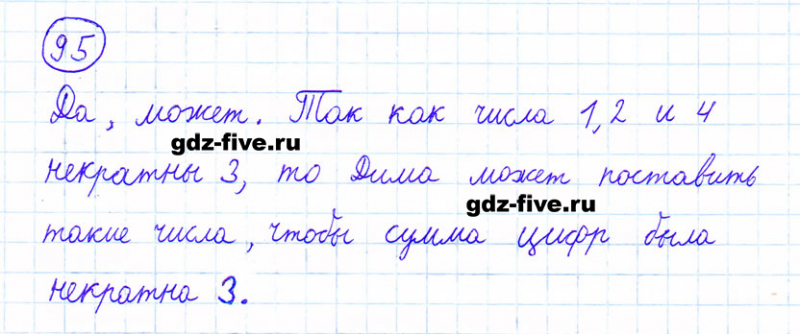 95
Да, может. Так как числа 1, 2 и 4
gdz-five.ru
некратны 3, то Дима может поставить
gdz-five.ru
такие числа, чтобы сумма цифр была
некратна 3.